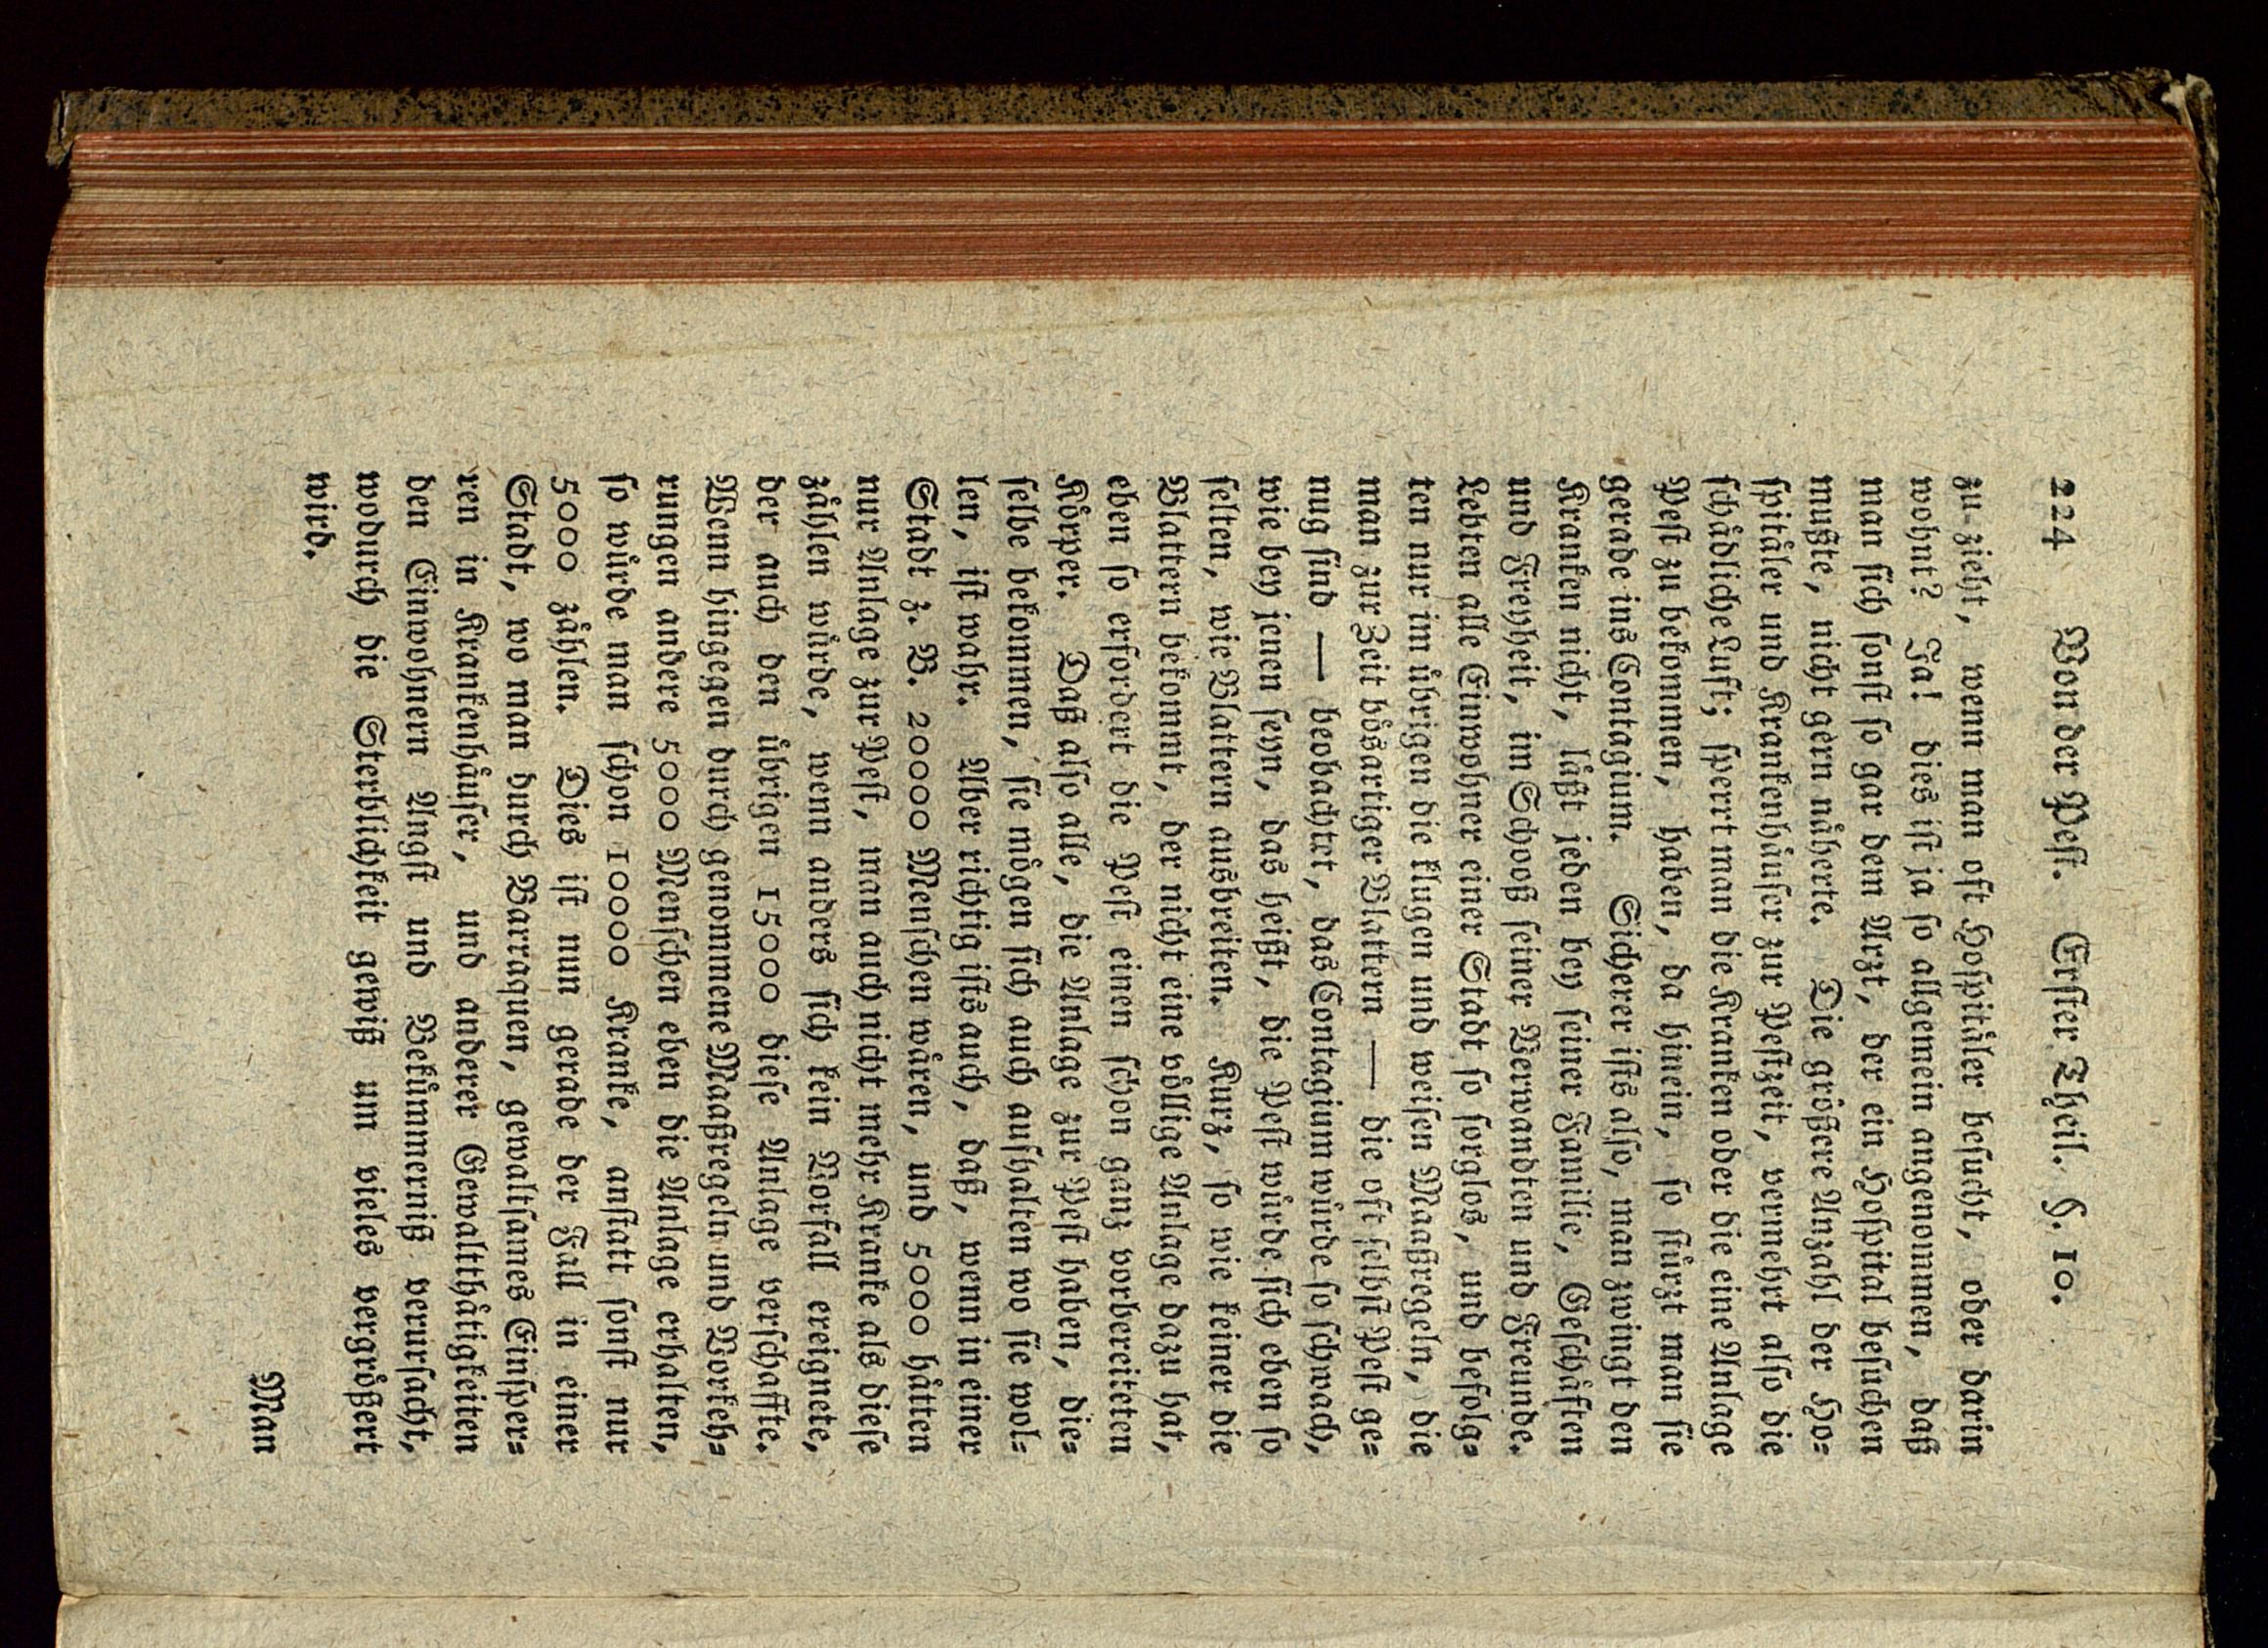 224 Von der Peſt. Erſter Theil. §. 10.
zu zieht, wenn man oft Hoſpitäler beſucht, oder darin
wohnt? Ja! dies iſt ja ſo allgemein angenommen, daß
man ſich ſonſt ſo gar dem Arzt, der ein Hoſpital beſuchen
mußte, nicht gern näherte. Die größere Anzahl der Ho⸗
ſpitäler und Krankenhäuſer zur Peſtzeit, vermehrt alſo die
ſchädliche Luft; ſperrt man die Kranken oder die eine Anlage
Peſt zu bekommen, haben, da hinein, ſo ſtürzt man ſie
gerade ins Contagium. Sicherer iſts alſo, man zwingt den
Kranken nicht, läßt jeden bey ſeiner Familie, Geſchäften
und Freyheit, im Schooß ſeiner Verwandten und Freunde.
Lebten alle Einwohner einer Stadt ſo ſorglos, und befolg⸗
ten nur im übrigen die klugen und weiſen Maaßregeln, die
man zur Zeit bösartiger Blattern — die oft ſelbſt Peſt ge⸗
nug ſind — beobachtet, das Contagium würde ſo ſchwach,
wie bey jenen ſeyn, das heißt, die Peſt würde ſich eben ſo
ſelten, wie Blattern ausbreiten. Kurz, ſo wie keiner die
Blattern bekommt, der nicht eine völlige Anlage dazu hat,
eben ſo erfordert die Peſt einen ſchon ganz vorbereiteten
Körper. Daß alſo alle, die Anlage zur Peſt haben, die⸗
ſelbe bekommen, ſie mögen ſich auch aufhalten wo ſie wol⸗
len, iſt wahr. Aber richtig iſts auch, daß, wenn in einer
Stadt z. B. 20000 Menſchen wären, und 5000 hätten
nur Anlage zur Peſt, man auch nicht mehr Kranke als dieſe
zählen würde, wenn anders ſich kein Vorfall ereignete,
der auch den übrigen 15000 dieſe Anlage verſchaffte.
Wenn hingegen durch genommene Maaßregeln und Vorkeh⸗
rungen andere 5000 Menſchen eben die Anlage erhalten,
ſo würde man ſchon 10000 Kranke, anſtatt ſonſt nur
5000 zählen. Dies iſt nun gerade der Fall in einer
Stadt, wo man durch Barraquen, gewaltſames Einſper⸗
ren in Krankenhäuſer, und anderer Gewaltthätigkeiten
den Einwohnern Angſt und Bekümmerniß verurſacht,
wodurch die Sterblichkeit gewiß um vieles vergrößert
wird.
Man